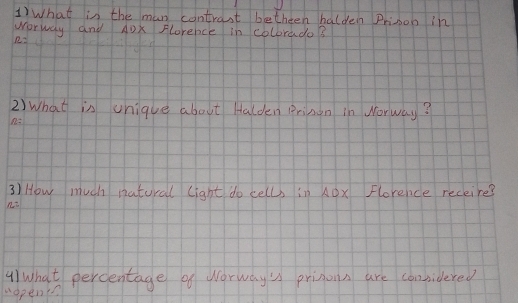 1) What is the man contrast betheen halden Prison in
Norway and ADX Florence in colorado?
R=
2) What is unique about Halden Prison in Norway?
R=
3) How much natural light do cells in ADX Florence receive?
R=
4) What percentage of Norway's prisons are considered
"open"?